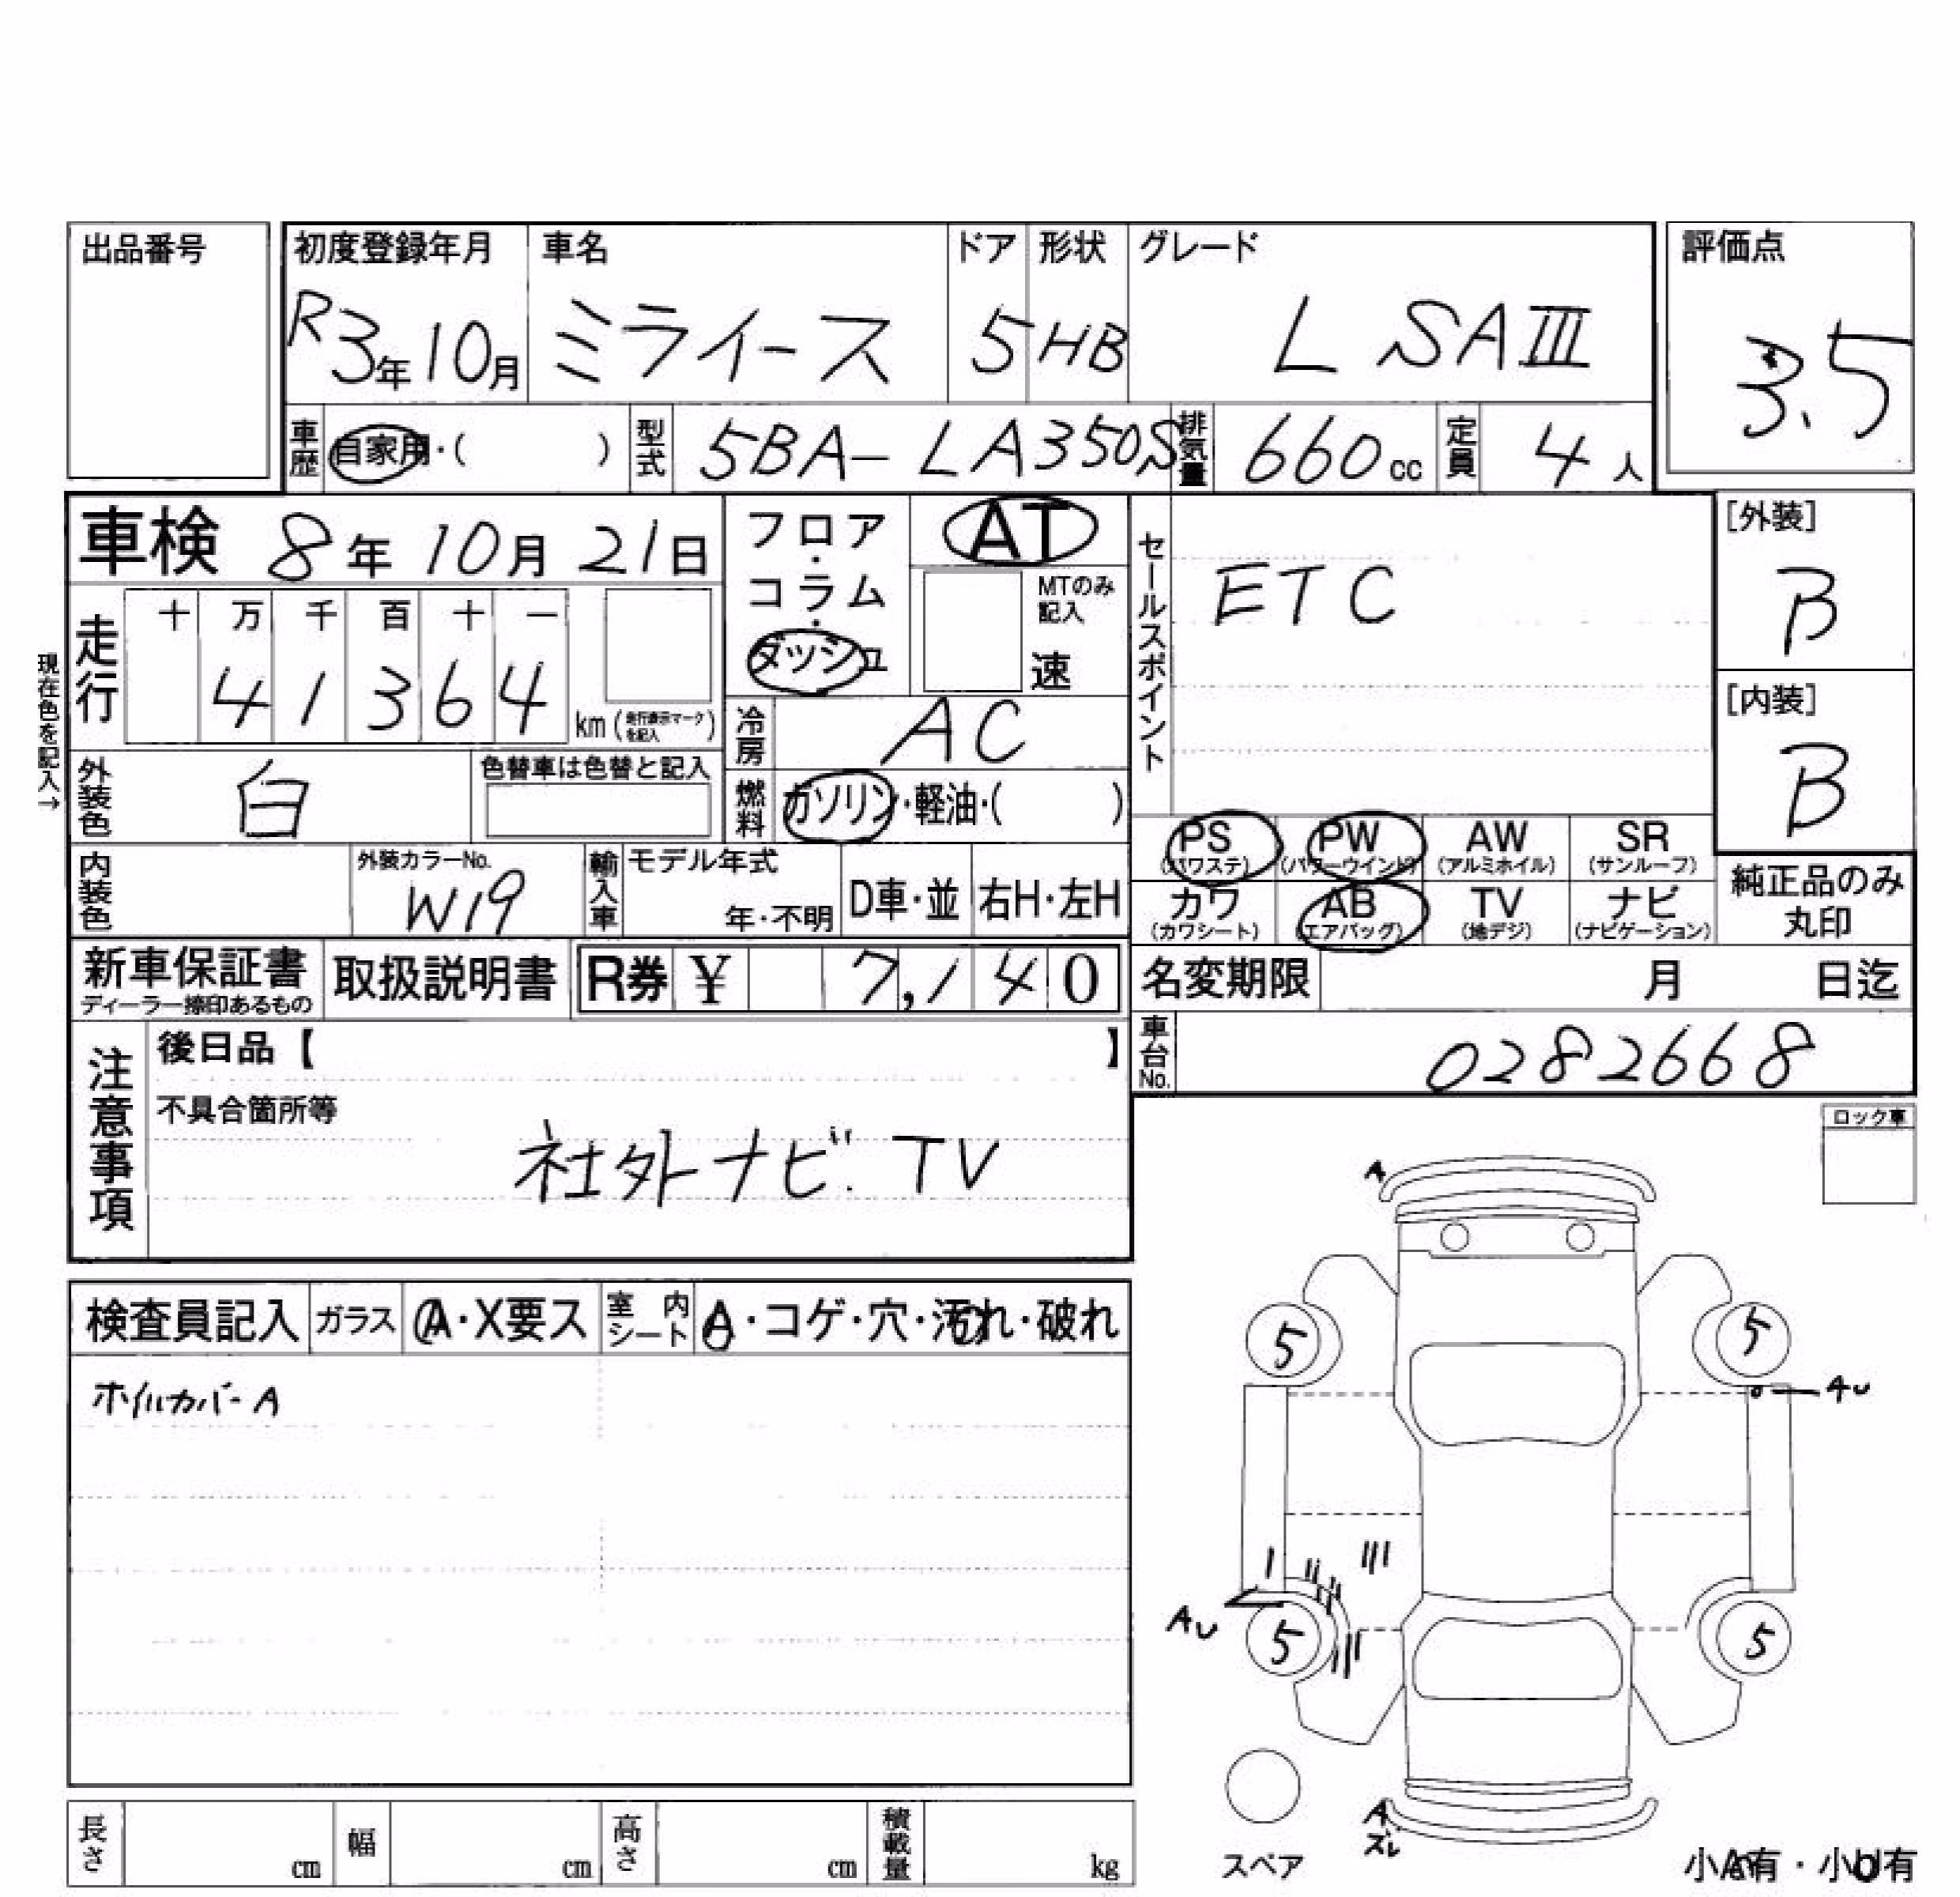 出品番号
初度登録年月 車名 ドア 形状 グレード 評価点
R3年10月 ミライース 5 HB L SAIII 3.5
車歴 自家用・( ) 型式 5BA-LA350S 排気量 660cc 定員 4人
車検 8年10月21日 フロア・コラム・ダッシュ AT セールスポイント [外装]
MTのみ記入 速 ETC B
現在色を記入→
走行 十 万 千 百 十 一
4 1 3 6 4 km(走行表示マークを記入) [内装]
冷房 AC B
外装色 白 色替車は色替と記入 燃料 ガソリン・軽油・( )
PS (パワステ) PW (パワーウインド) AW (アルミホイル) SR (サンルーフ)
内装色 外装カラーNo. W19 輸入車 モデル年式 年・不明 D車・並 右H・左H
カワ (カワシート) AB (エアバッグ) TV (地デジ) ナビ (ナビゲーション) 純正品のみ丸印
新車保証書 ディーラー捺印あるもの 取扱説明書 R券 ¥ 7,140 名変期限 月 日迄
注意事項 後日品【 】 車台No. 0282668
不具合箇所等
社外ナビ.TV
ロック車
検査員記入 ガラス A・X要ス 室内シート A・コゲ・穴・汚れ・破れ
ホイルカバーA
A
5 5
AU
AU
5 5
A
ズレ
スペア 小A有・小U有
長さ cm 幅 cm 高さ cm 積載量 kg